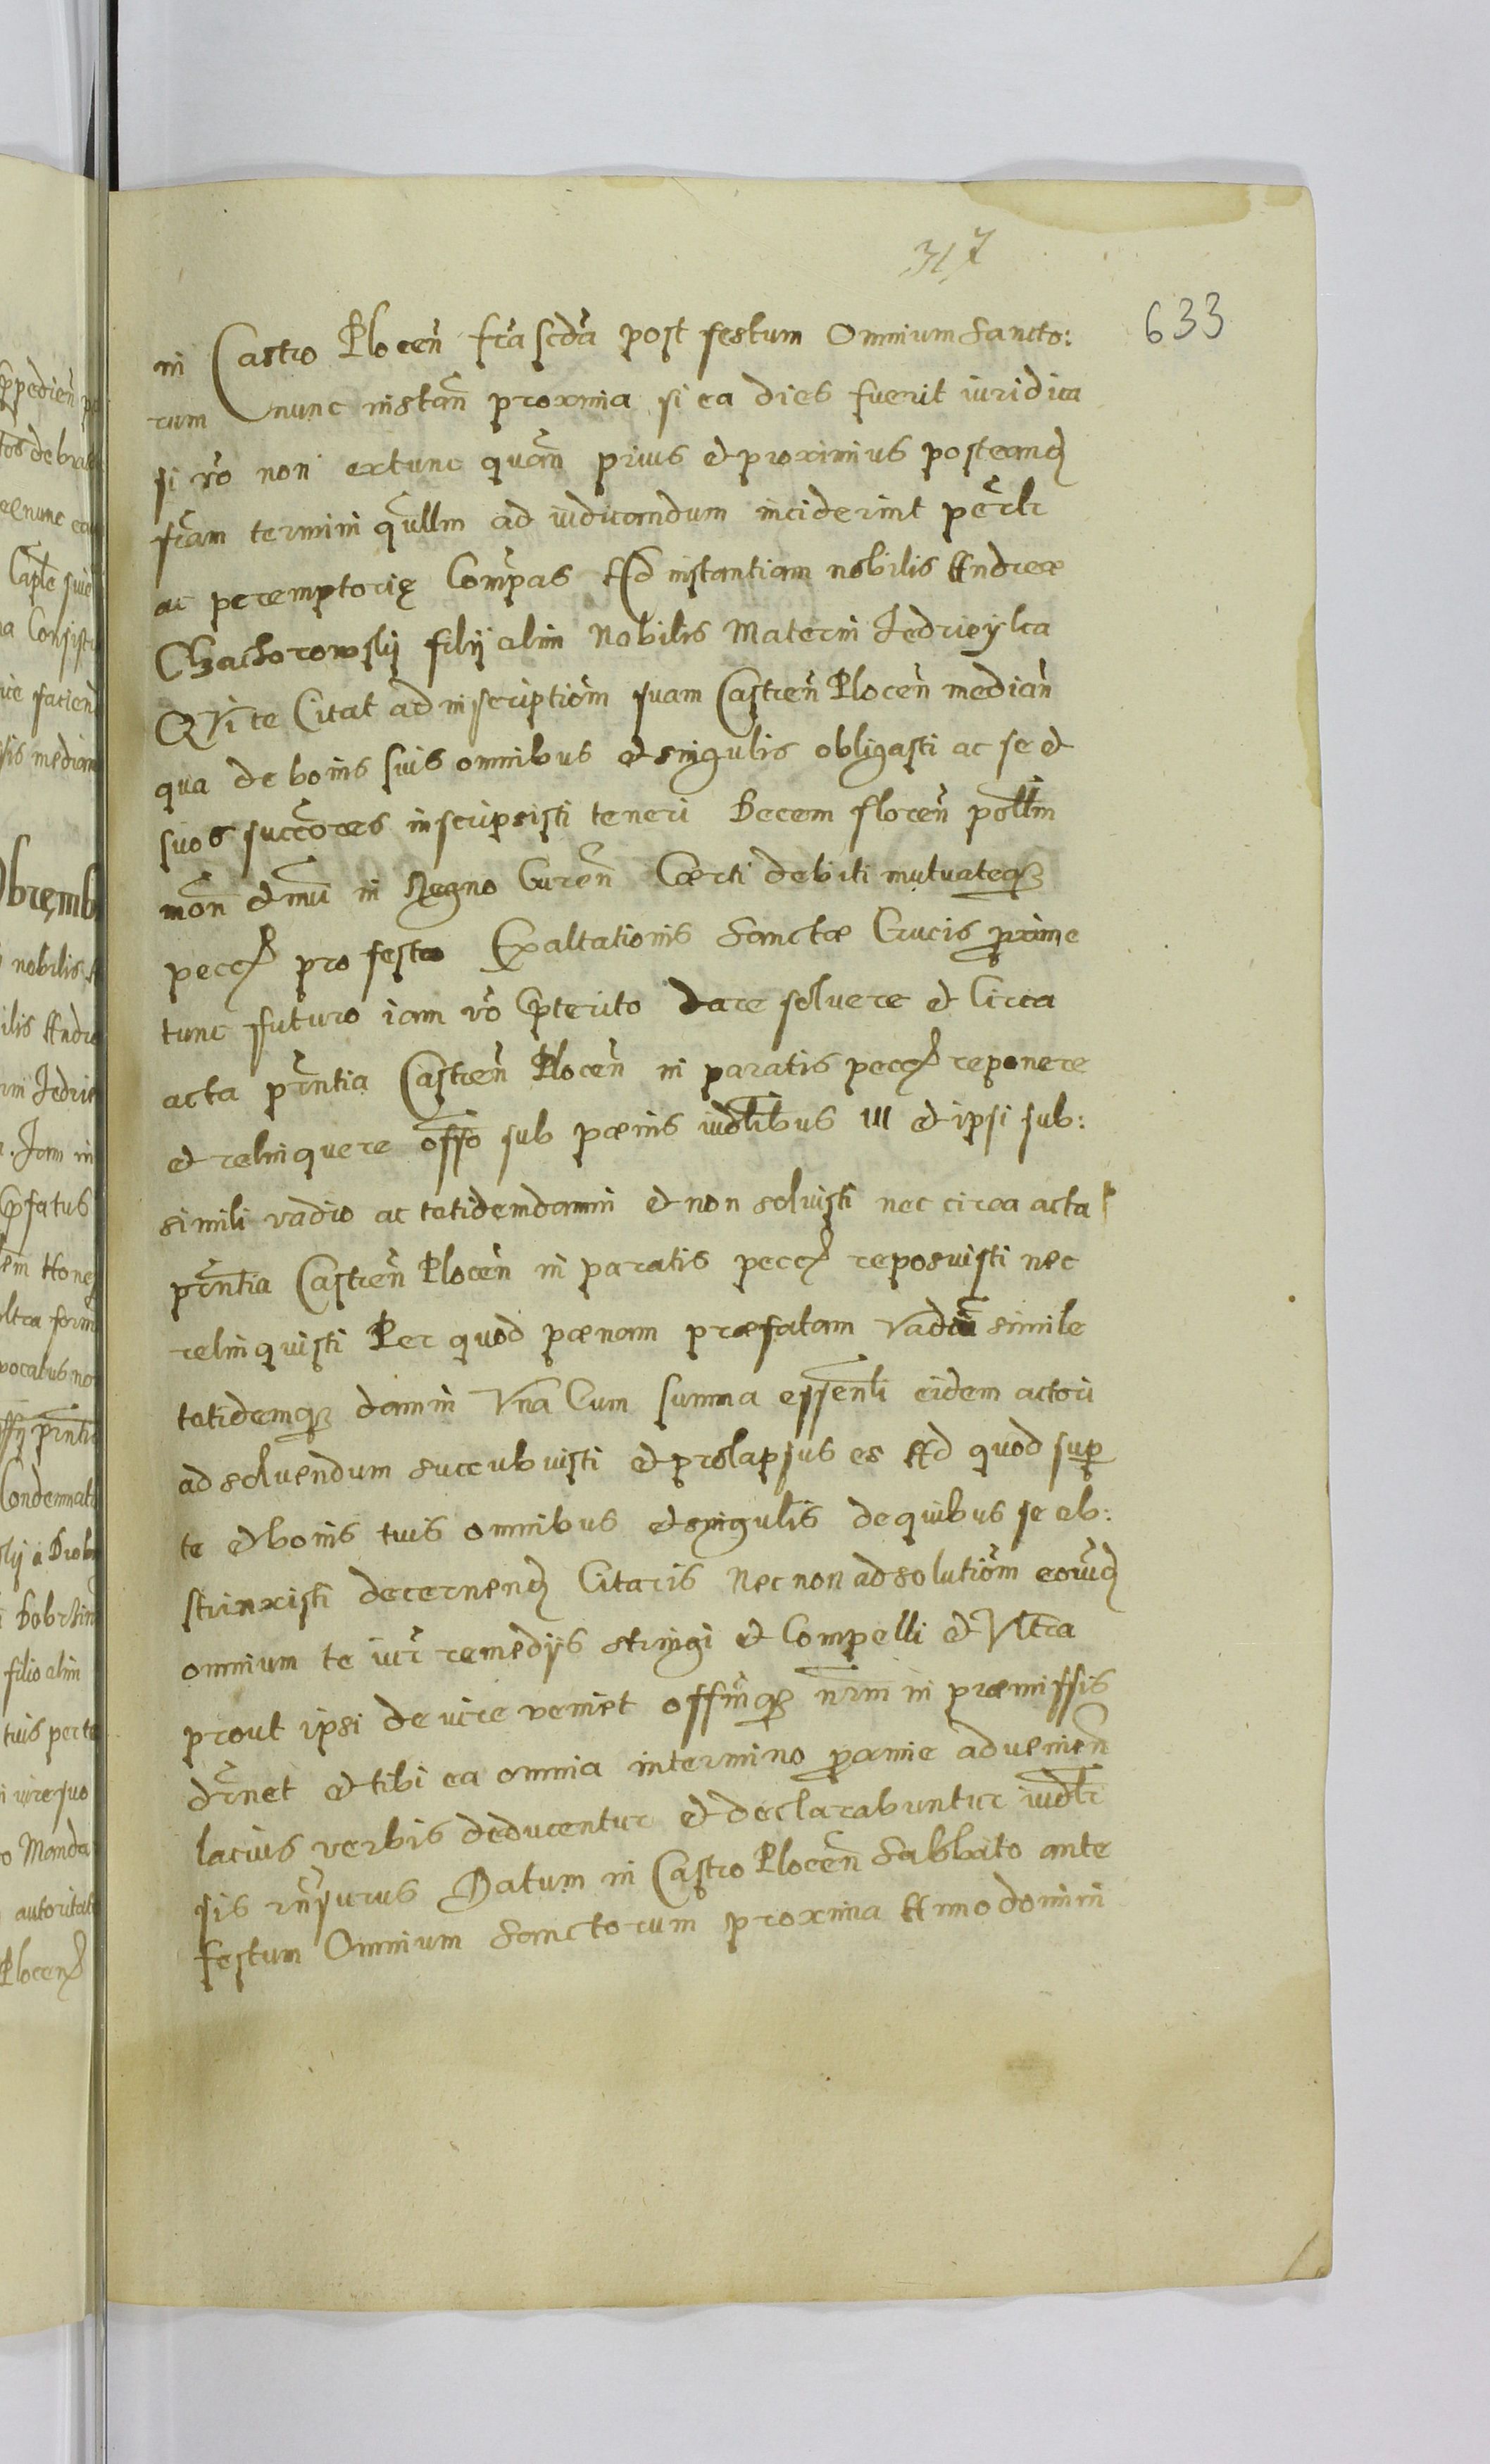 317
633
in Castro Plocen̄ fr̄a scd̄a post festum Omnium Sancto:
rum nunc instan̄ proxima si ea dies fuerit iuridica
si v̄ro non extunc quan̄ prius et proximius posteanq̄
fr̄am termini qūllm ad iudicandum inciderint per̄lr
ac peremptorię Comp̄as Ad instantiam nobilis Andreæ
Chachorowskij filij olim Nobilis Materni Jedrieyka
Qui te Citat ad inscriptiōm suam Castren̄ Plocen̄ median̄
qua de bonis suis omnibus et singulis obligasti ac se et
suos succ̄ores inscripsisti teneri Decem floren̄ poll̄m
mon̄ et nūi in Regno Curen̄ Certi debiti mutuateq3
pecc̄ pro festo Exaltationis Sanctæ Crucis proxime
tunc futuro iam v̄ro p̄terito dare solvere et Circa
acta pr̄ntia Castren̄ Plocen̄ in paratis pecc̄ reponere
et relinquere off̄o sub pœnis iud̄libus III et ipsi sub:
simili vadio ac totidem damni et non solvisti nec circa acta
pr̄ntia Castren̄ Plocen̄ in paratis pecc̄ reposuisti nec
relinquisti Per quod pœnam præfatam vadiū simile
totidemq3 damni Vna Cum summa essen̄li eidem actori
ad solvendum succubuisti et prolapsus es Ad quod sup̱
te et bonis tuis omnibus et singulis de quibus se ob:
strinxisti decernenḏ Citaris Nec non ad solutiōm eorūḏ
omnium te iur̄ remedijs stringi et Compelli et Vltra
prout ipsi de iure veniet offm̄q3 nr̄m in præmissis
dr̄net et tibi ea omnia in termino p̱xime advenien̄
lacius verbis deducentur et declarabuntur iud̄lr
sis rn̄surus Datum in Castro Plocen̄ Sabbato ante
festum Omnium Sanctorum proxima Anno domini